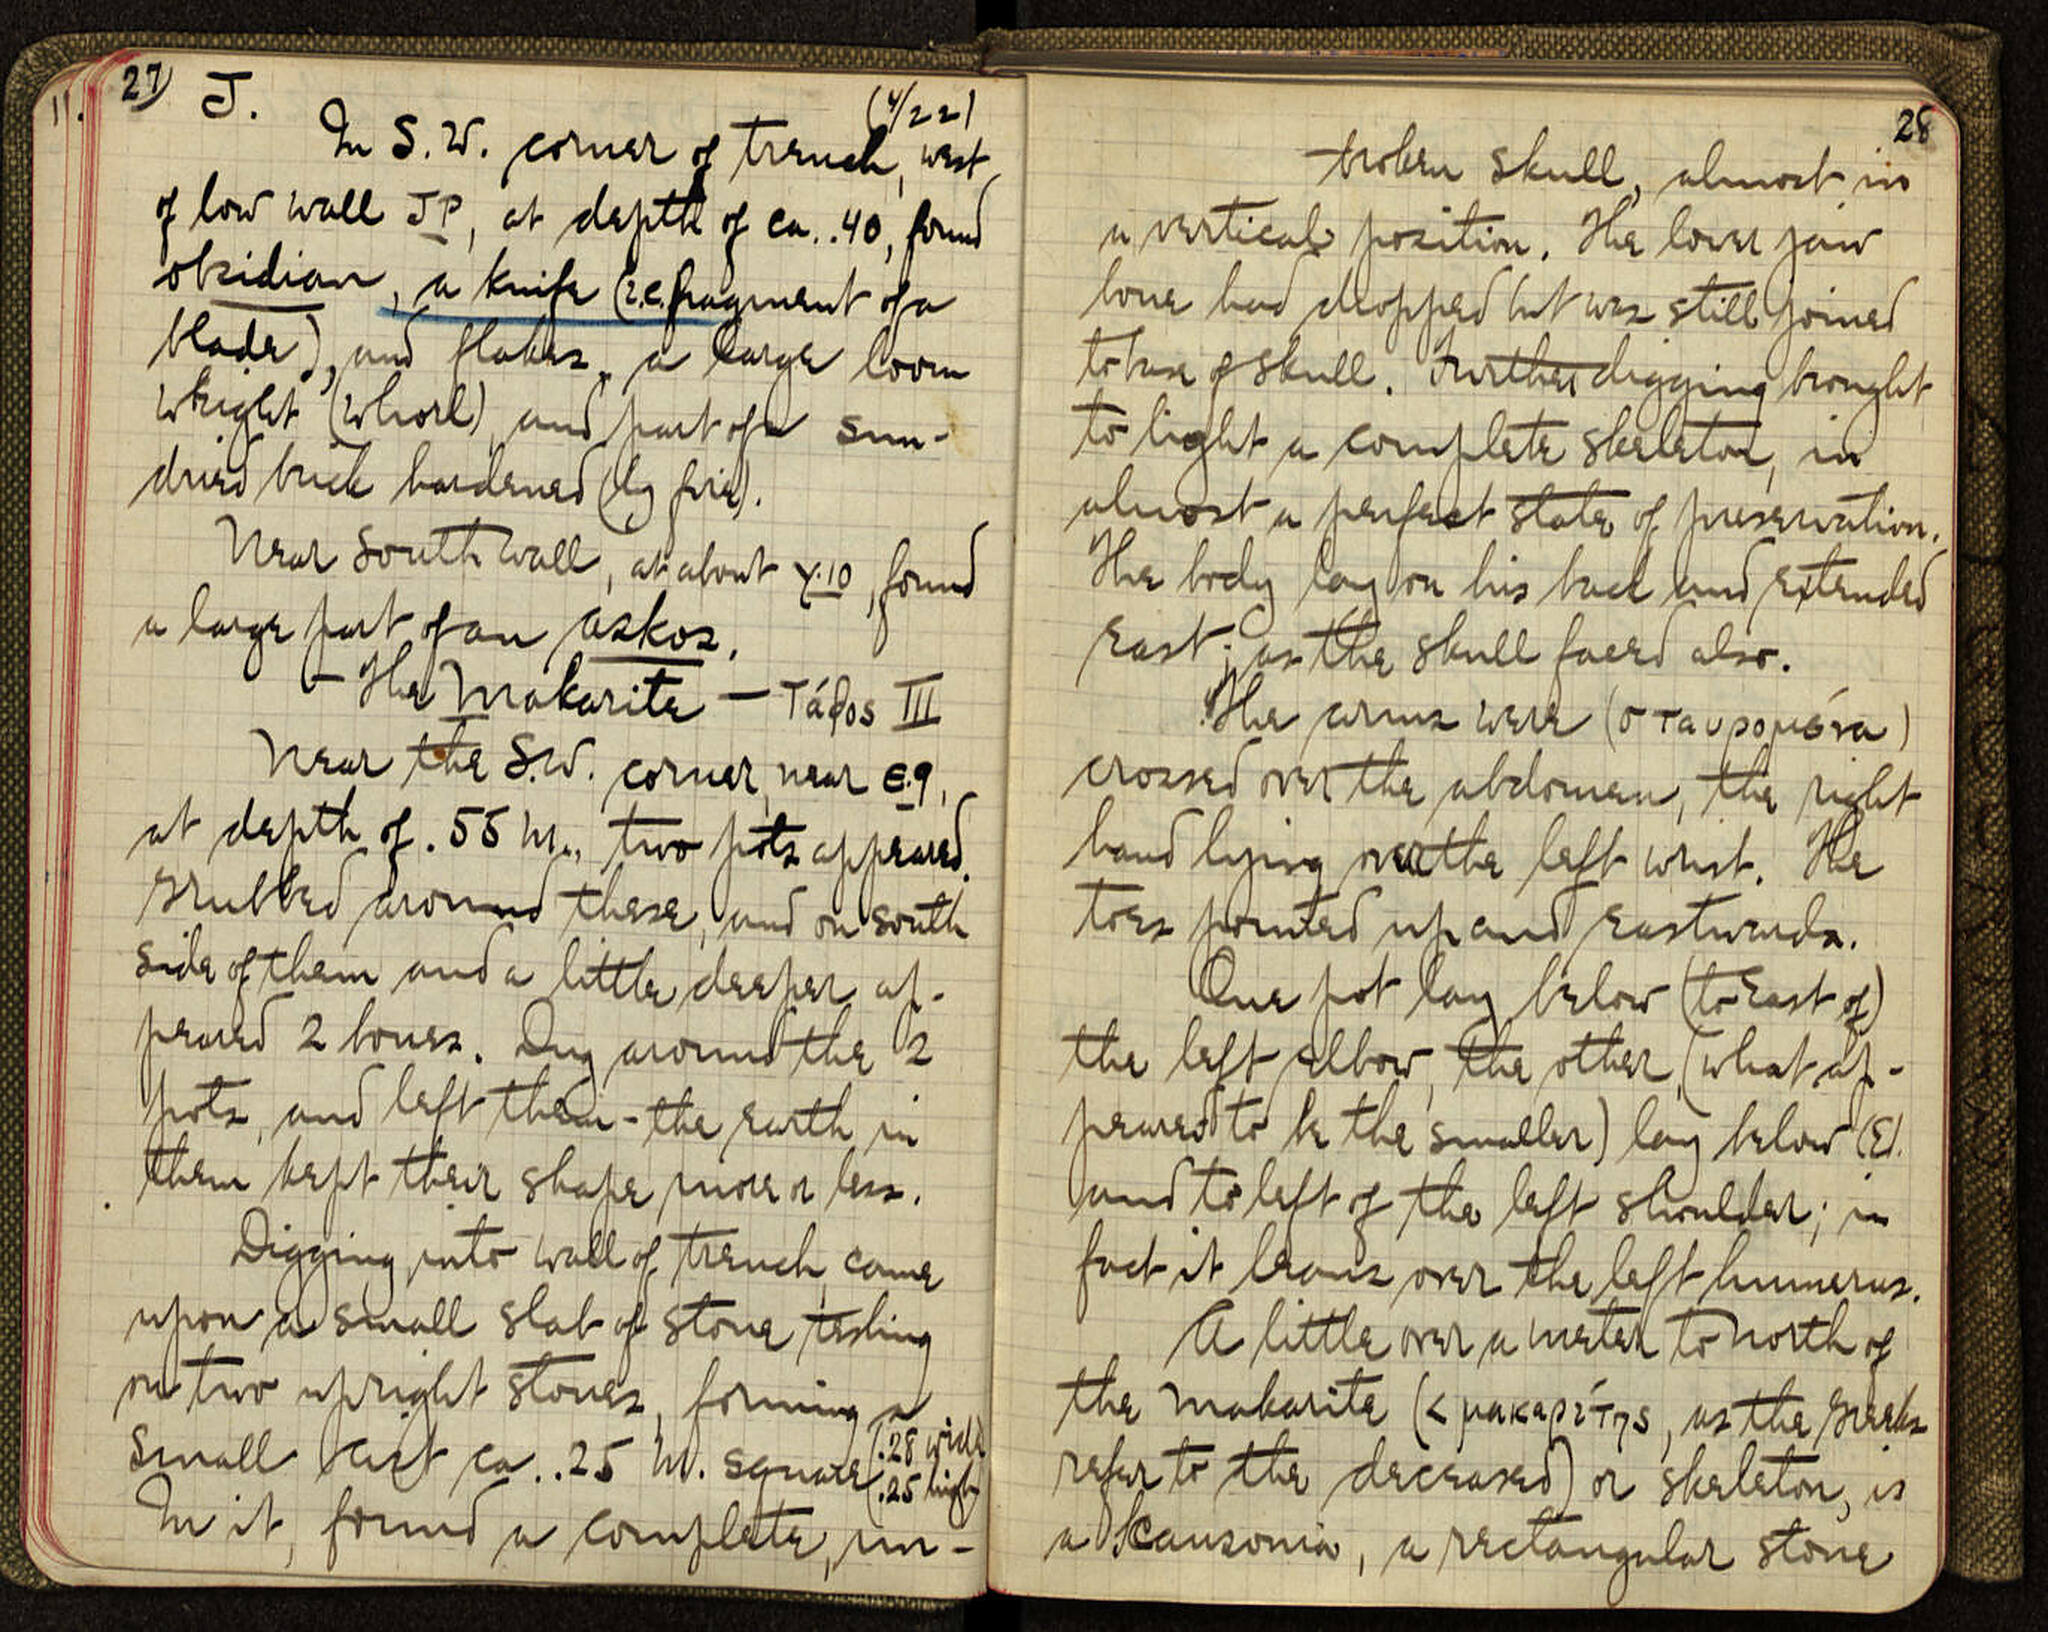 27) J. (4/22)
In S.W. corner of trench, west
of low wall JP, at depth of ca. .40, found
obsidian, a knife (i.e. fragment of a
blade), and flakes, a large loom
weight (whorl), and part of a sun-
dried brick hardened (by fire).
Near south wall, at about γ.10, found
a large part of an askos.
— The Makarite — Τάφος III
Near the S.W. corner, near ε.9,
at depth of .55 m., two pots appeared.
Grubbed around these, and on south
side of them and a little deeper ap-
peared 2 bones. Dug around the 2
pots, and left them - the earth in
them kept their shape more or less.
Digging into wall of trench, came
upon a small slab of stone resting
on two upright stones, forming a
small cist ca. .25 m. square (.28 wide
.25 high)
In it, found a complete, un-
28
broken skull, almost in
a vertical position. The lower jaw
bone had dropped but was still joined
to base of skull. Further digging brought
to light a complete skeleton, in
almost a perfect state of preservation.
The body lay on his back and extended
east; as the skull faced also.
The arms were (σταυρομένα)
crossed over the abdomen, the right
hand lying over the left wrist. The
toes pointed up and eastwards.
One pot lay below (to east of)
the left elbow, the other, (what ap-
peared to be the smaller) lay below (E).
and to left of the left shoulder; in
fact it leans over the left humerus.
A little over a meter to north of
the makarite (< μακαρίτης, as the Greeks
refer to the deceased) or skeleton, is
a kausonia, a rectangular stone